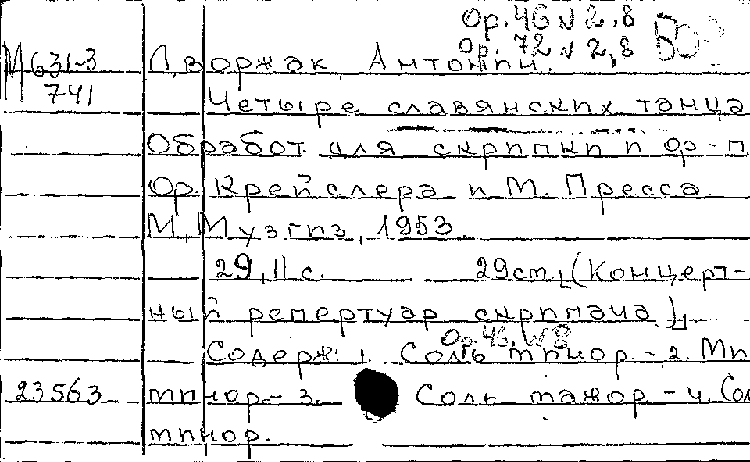 Op. 46 N 2, 8
Op. 72 N 2, 8
М 631-3 Дворжак, Антонин.
741 Четыре славянских танца
Обработ. для скрипки и ф-п
Фр. Крейслера и М. Пресса.
М., Музгиз, 1953.
29, 11 с. 29 cm, (Концерт-
ный репертуар скрипача)
Op. 46, N 8
Содерж: 1. Соль минор - 2. Ми
23563 минор - 3. Соль мажор - 4. Сол
минор.